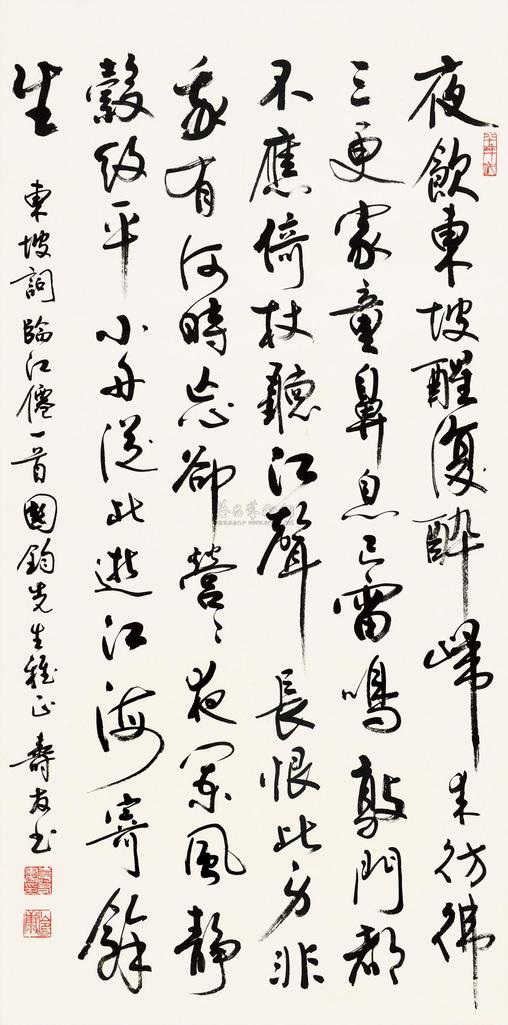 夜飲東坡醒復醉歸 来彷彿
三更家童鼻息已雷鳴敲門都
不應倚杖聽江聲 長恨此身非
我有何時忘卻營〻夜闌風靜
縠紋平 小舟從此逝江海寄餘
生 東坡詞臨江僊一首國鈞先生雅正 壽友书